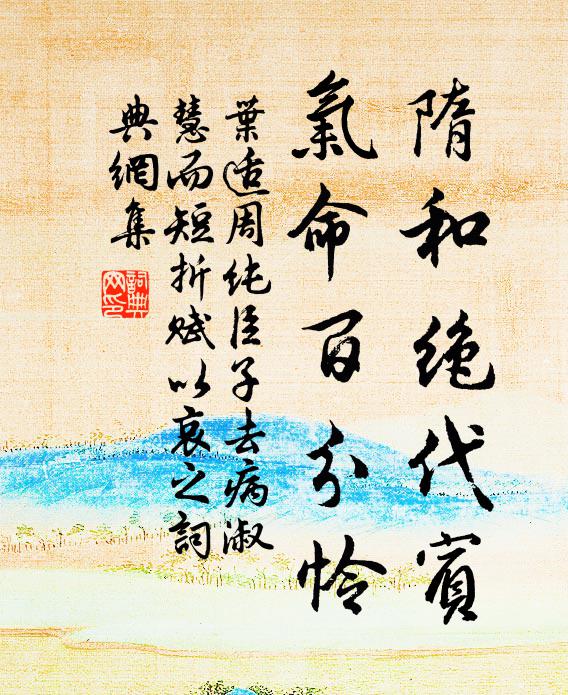 隋和絶代賓
氣命百分怜
葉适周纯臣子去病淑
慧而短折赋以哀之詞
典網集
詞典网印